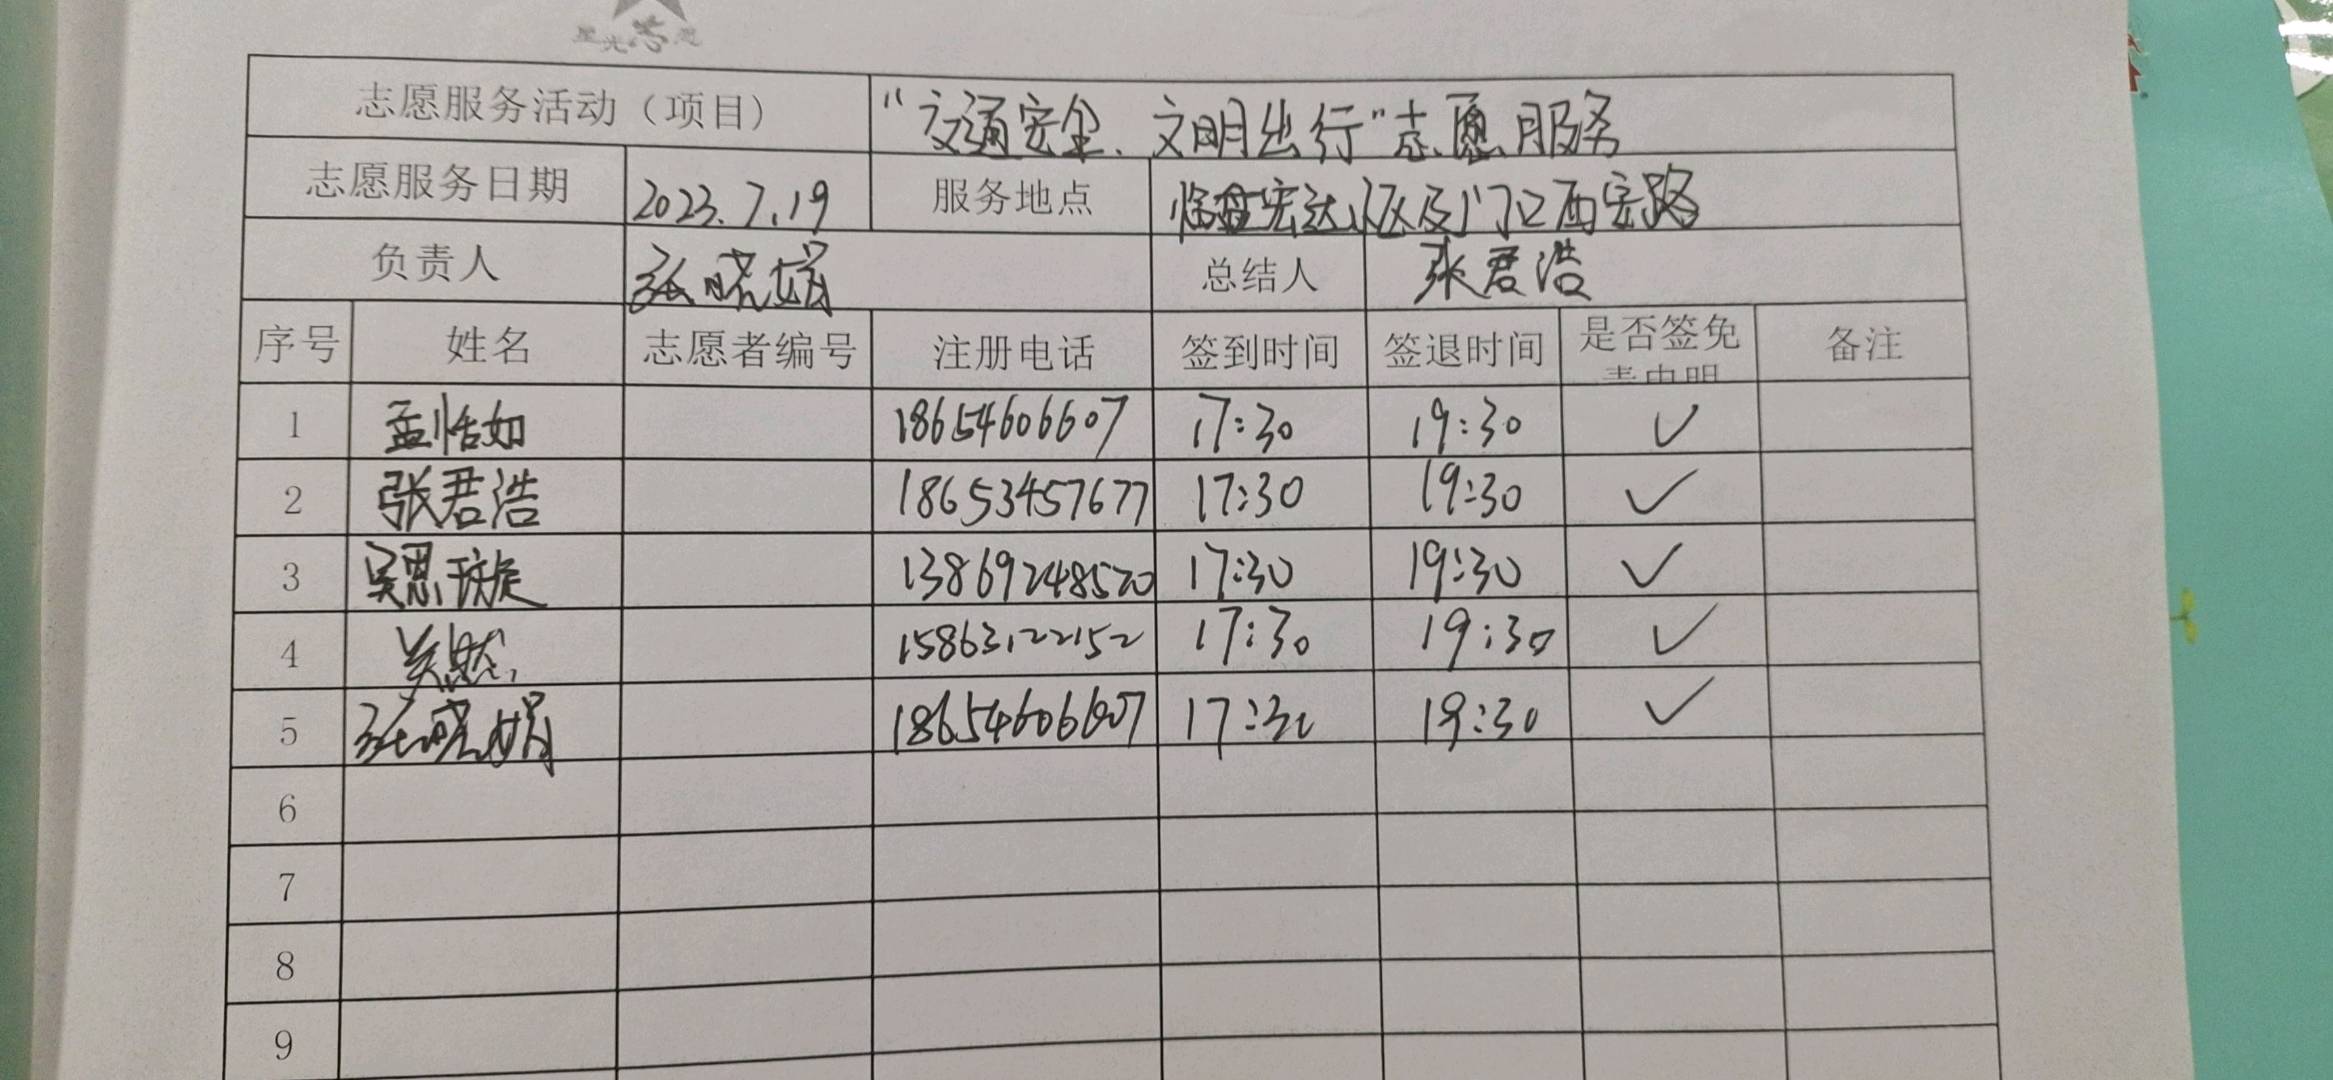 星光志愿
志愿服务活动（项目） “交通安全、文明出行”志愿服务
志愿服务日期 2023.7.19 服务地点 临盘宏达小区及门口西宏路
负责人 张晓娟 总结人 张君浩
序号 姓名 志愿者编号 注册电话 签到时间 签退时间 是否签免责申明 备注
1 孟恬如 18654606607 17:30 19:30 ✓
2 张君浩 18653457677 17:30 19:30 ✓
3 吴思璇 13869248520 17:30 19:30 ✓
4 关然 15863122152 17:30 19:30 ✓
5 张晓娟 18654606607 17:30 19:30 ✓
6
7
8
9